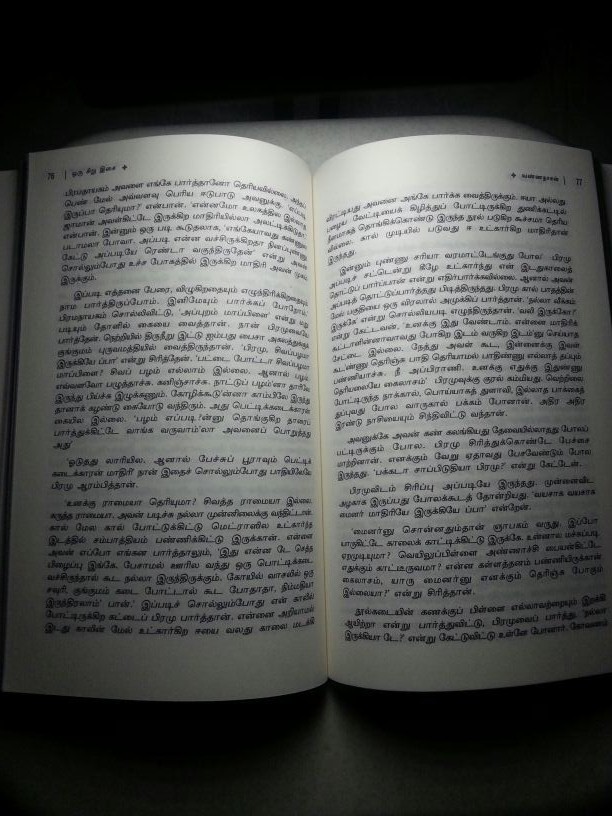 76 | ஒரு சிறு இசை ✦
பிரமநாயகம் அவனை எங்கே பார்த்தானோ தெரியவில்லை. அந்தப்
பெண் மேல் அவ்வளவு பெரிய ஈடுபாடு அவனுக்கு. 'எப்படி
இருப்பா தெரியுமா?' என்பான். 'என்னமோ உலகத்தில இல்லாத
ஜாமான் அவள்கிட்டே இருக்கிற மாதிரியில்லா அலட்டிக்கிடுதா'
என்பான். இன்னும் ஒரு படி கூடுதலாக, 'எங்கேயாவது கண்ணுல
படாமலா போவா. அப்படி என்ன வச்சிருக்கிறதா நினைப்புன்னு
கேட்டு அப்படியே ரெண்டா வகுந்திருதேன்' என்று அவன்
சொல்லும்போது உச்ச போகத்தில் இருக்கிற மாதிரி அவன் முகம்
இருக்கும்.
இப்படி எத்தனை பேரை, விழுகிறதையும் எழுந்திரிக்கிறதையும்
நாம பார்த்திருப்போம். இனிமேயும் பார்க்கப் போறோம்.
பிரமநாயகம் சொல்லிவிட்டு, 'அப்புறம் மாப்பிளை' என்று மறு
படியும் தோளில் கையை வைத்தான். நான் பிரமுவையே
பார்த்தேன். நெற்றியில் திருநீறு இட்டு ஐம்பது பைசா அகலத்துக்கு
குங்குமம் புருவமத்தியில் வைத்திருந்தான். 'பிரமு, சிவப்பழமா
இருக்கியே ப்பா' என்று சிரித்தேன். 'பட்டை போட்டா சிவப்பழமா
மாப்பிளை? சிவப் பழம் எல்லாம் இல்லை. ஆனால் பழம்
எவ்வளவோ பழுத்தாச்சு. கனிஞ்சாச்சு. நாட்டுப் பழம்'னா தாரிலே
இருந்து பிய்ச்சு இழுக்கணும். கோழிக்கூடு'ன்னா காம்பிலே இருந்து
தானாக் கழண்டு கையோடு வந்திரும். அது பெட்டிக்கடைக்காரன்
கையில இல்லை. 'பழம் எப்படி?'ன்னு தொங்குகிற தாரைப்
பார்த்துக்கிட்டே வாங்க வருவாம்'லா அவனைப் பொறுத்து
அது'
'ஓடுதது லாரியில. ஆனால் பேச்சுப் பூராவும் பெட்டிக்
கடைக்காரன் மாதிரி' நான் இதைச் சொல்லும்போது பாதியிலேயே
பிரமு ஆரம்பித்தான்.
'உனக்கு ராமையா தெரியுமா? சிவத்த ராமையா இல்லை.
கருத்த ராமையா. அவன் படிச்சு நல்லா முன்னிலைக்கு வந்திட்டான்.
கால் மேல கால் போட்டுக்கிட்டு மெட்ராஸில உட்கார்ந்த
இடத்தில் சம்பாத்தியம் பண்ணிக்கிட்டு இருக்கான். என்னை
அவன் எப்போ எங்கன பார்த்தாலும், 'இது என்ன டே செத்த
பிழைப்பு இங்கே. பேசாமல் ஊரில வந்து ஒரு பொட்டிக்கடை
வச்சிருந்தால் கூட நல்லா இருந்திருக்கும். கோயில் வாசலில் ஒரு
சவுரி, குங்குமம் கடை போட்டால் கூட போதாதா, நிம்மதியா
இருந்திரலாம்' பான்.' இப்படிச் சொல்லும்போது என் காலில்
போட்டிருக்கிற கட்டைப் பிரமு பார்த்தான். என்னை அறியாமல்
இடது காலின் மேல் உட்கார்கிற ஈயை வலது காலை மடக்கி
✦ வண்ணதாசன் | 77
விரட்டியது அவனை அங்கே பார்க்க வைத்திருக்கும். ஈயா அல்லது
பழைய வேட்டியைக் கிழித்துப் போட்டிருக்கிற துணிக்கட்டில்
நீளமாகத் தொங்கிக்கொண்டு இருந்த நூல் படுகிற கூச்சமா தெரிய
வில்லை. கால் முடியில் படுவது ஈ உட்கார்கிற மாதிரிதான்
இருந்தது.
'இன்னும் புண்ணு சரியா வரமாட்டேங்குது போல' பிரமு
அப்படிச் சட்டென்று கீழே உட்கார்ந்து என் இடதுகாலைத்
தொட்டுப் பார்ப்பான் என்று எதிர்பார்க்கவில்லை. ஆனால் அவன்
அப்படித் தொட்டுப்பார்த்தது பிடித்திருந்தது. பிரமு கால் பாதத்தின்
மேல் பகுதியை ஒரு விரலால் அமுக்கிப் பார்த்தான். 'நல்லா வீக்கம்
இருக்கே' என்று சொல்லியபடி எழுந்திருந்தான். 'வலி இருக்கோ?'
என்று கேட்டவன். 'உனக்கு இது வேண்டாம். என்னை மாதிரிக்
கூட்டாளின்னாலாவது போகிற இடம் வருகிற இடம்னு செய்யாத
சேட்டை இல்லை. நேத்து அவள் கூட, இன்னைக்கு இவள்
கூட'ன்னு தெரிஞ்சு பாதி தெரியாமல் பாதிண்ணு எல்லாத் தப்பும்
பண்ணியாச்சு. நீ அப்பிராணி. உனக்கு எதுக்கு இதுண்ணு
தெரியலையே கைலாசம்' பிரமுவுக்கு குரல் கம்மியது. வெற்றிலை
போட்டிருந்த நாக்கால், பொய்யாகத் துளாவி, இல்லாத பாக்கைத்
துப்புவது போல வாருகால் பக்கம் போனான். அதிர அதிர
இரண்டு நாசியையும் சிந்திவிட்டு வந்தான்.
அவனுக்கே அவன் கண் கலங்கியது தேவையில்லாதது போலப்
பட்டிருக்கும் போல. பிரமு சிரித்துக்கொண்டே பேச்சை
மாற்றினான். எனக்கும் வேறு ஏதாவது பேசவேண்டும் போல
இருந்தது. 'பக்கடா சாப்பிடுதியா பிரமு?' என்று கேட்டேன்.
பிரமுவிடம் சிரிப்பு அப்படியே இருந்தது. முன்னைவிட
அழகாக இருப்பது போலக்கூடத் தோன்றியது. 'வயசாக வயசாகக்
மைனர் மாதிரியே இருக்கியே ப்பா' என்றேன்.
'மைனர்'னு சொன்னதும்தான் ஞாபகம் வருது. இப்போ
யாருகிட்டே காலைக் காட்டிக்கிட்டு இருக்கே. உன்னால மச்சுப்படி
ஏறமுடியுமா? வெயிலுப்பிள்ளை அண்ணாச்சி பையன்கிட்டே
எதுக்கும் காட்டீருவமா? என்ன கள்ளத்தனம் பண்ணியிருக்கான்
கைலாசம், யாரு மைனர்'னு எனக்கும் தெரிஞ்சு போரும்
இல்லையா?' என்று சிரித்தான்.
நூல்கடையின் கணக்குப் பிள்ளை எல்லாவற்றையும் இறக்கி
ஆயிற்றா என்று பார்த்துவிட்டு, பிரமுவைப் பார்த்து, 'நல்லா
இருக்கியா டே?' என்று கேட்டுவிட்டு உள்ளே போனார்.